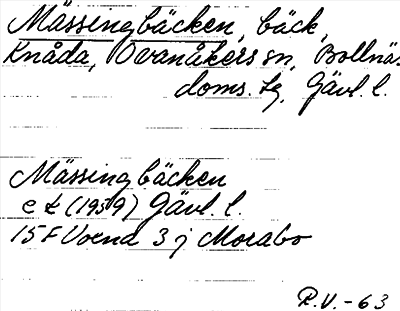 Mässingbäcken, bäck,
Knåda, Ovanåkers sn, Bollnäs
doms. tg, Gävl. l.
Mässingbäcken
e k (1959) Gävl. l.
15 F Voxna 3 j Morabo
R.V.-63